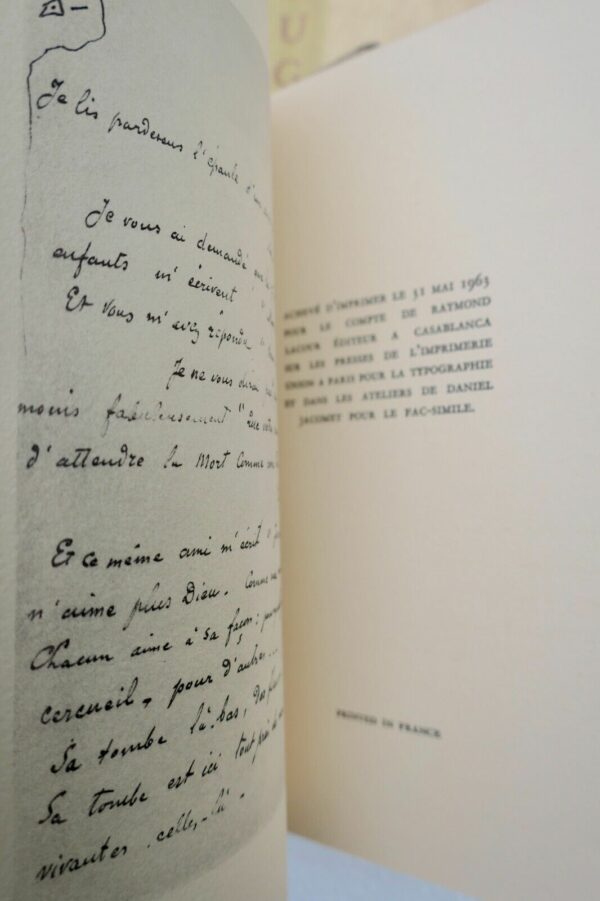 Je lis pardessus l'épaule d'un
Je vous ai demandé
enfants m'écrivent
Et vous m'avez répondu
Je ne vous dirai
moins fabuleusement
d'attendre la Mort comme
Et ce même ami m'écrit
n'aime plus Dieu. Comme
Chacun aime à sa façon : pour
cercueil, pour d'autres...
Sa tombe là-bas, des
Sa tombe est ici tout près de
vivantes celles-là -
UC
ACHEVÉ D'IMPRIMER LE 31 MAI 1963
POUR LE COMPTE DE RAYMOND
LACOUR ÉDITEUR A CASABLANCA
SUR LES PRESSES DE L'IMPRIMERIE
UNION A PARIS POUR LA TYPOGRAPHIE
ET DANS LES ATELIERS DE DANIEL
JACOMET POUR LE FAC-SIMILE.
PRINTED IN FRANCE